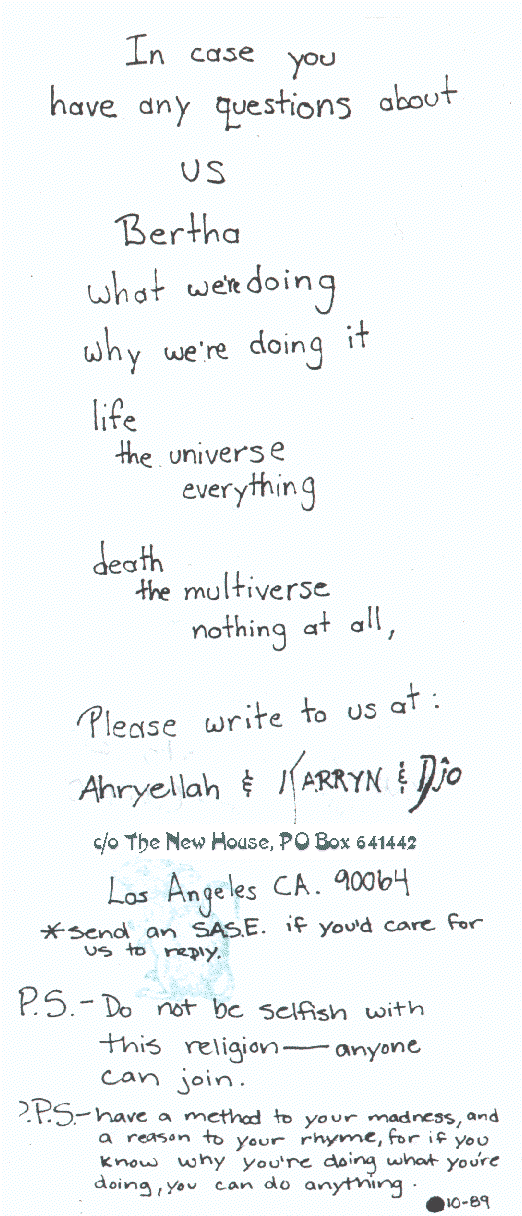 In case you
have any questions about
us
Bertha
what we're doing
why we're doing it
life
the universe
everything
death
the multiverse
nothing at all,
Please write to us at:
Ahryellah & KARRYN & Djo
c/o The New House, PO Box 641442
Los Angeles CA. 90064
*send an SAS.E. if you'd care for
us to reply.
P.S.- Do not be selfish with
this religion—anyone
can join.
P.P.S.- have a method to your madness, and
a reason to your rhyme, for if you
know why you're doing what you're
doing, you can do anything.
10-89